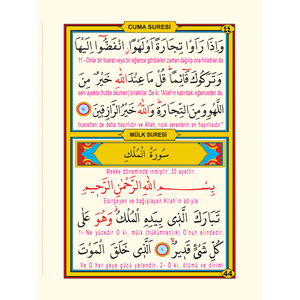 CUMA SURESİ
وَاِذَا رَاَوْا تِجَارَةً اَوْ لَهْوًا ۨانْفَضُّٓوا اِلَيْهَا
11 - Onlar bir ticaret veya bir eğlence gördükleri zaman dağılıp ona fırladılar da
وَتَرَكُوكَ قَٓائِمًاۜ قُلْ مَا عِنْدَ اللّٰهِ خَيْرٌ مِنَ
seni ayakta (hutbe okurken) bıraktılar. De ki: "Allah'ın katındaki eğlenceden de,
اللَّهْوِ وَمِنَ التِّجَارَةِۜ وَاللّٰهُ خَيْرُ الرَّازِق۪ينَ
ticaretten de daha hayırlıdır ve Allah, rızık verenlerin en hayırlısıdır."
MÜLK SURESİ
سُورَةُ الْمُلْكِ
Mekke döneminde inmiştir. 30 ayettir.
بِسْمِ اللّٰهِ الرَّحْمٰنِ الرَّح۪يمِ
Esirgeyen ve bağışlayan Allah'ın adıyla
تَبَارَكَ الَّذ۪ي بِيَدِهِ الْمُلْكُۘ وَهُوَ عَلٰى
1- Ne yücedir O ki, mülk (hükümranlık) O'nun elindedir.
كُلِّ شَيْءٍ قَد۪يرٌۙ اَلَّذ۪ي خَلَقَ الْمَوْتَ
Ve O her şeye gücü yetendir. 2- O ki, ölümü ve dirimi
44